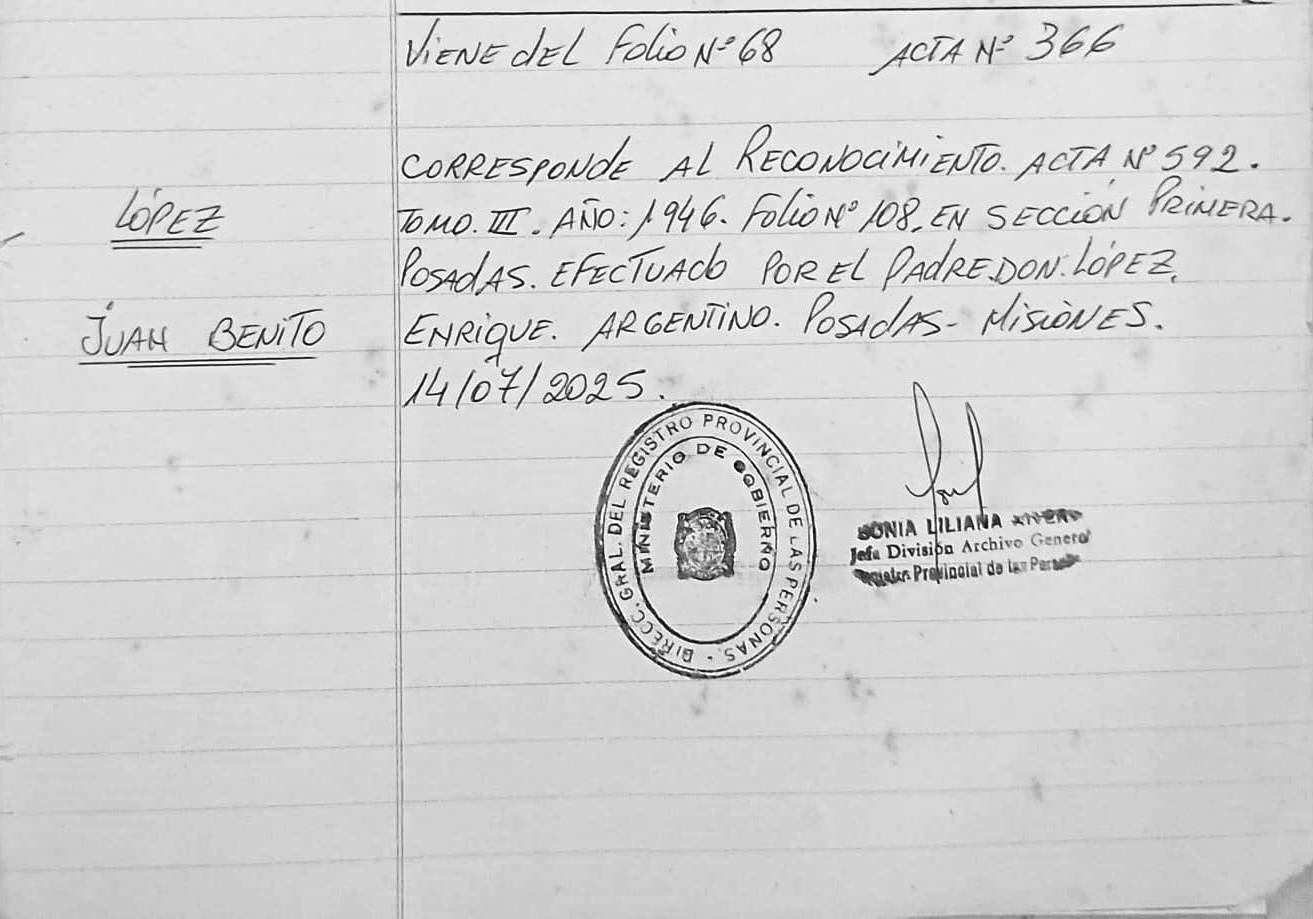 VIENE DEL FOLIO Nº 68 ACTA Nº 366
CORRESPONDE AL RECONOCIMIENTO. ACTA Nº 592.
LÓPEZ
TOMO. III. AÑO: 1946. FOLIO Nº 108. EN SECCIÓN PRIMERA.
POSADAS. EFECTUADO POR EL PADRE. DON: LÓPEZ,
JUAN BENITO
ENRIQUE. ARGENTINO. POSADAS - MISIONES.
14/07/2025.
DIRECC. GRAL. DEL REGISTRO PROVINCIAL DE LAS PERSONAS. -
MINISTERIO DE GOBIERNO
SONIA LILIANA
Jefa División Archivo General
Provincial de las